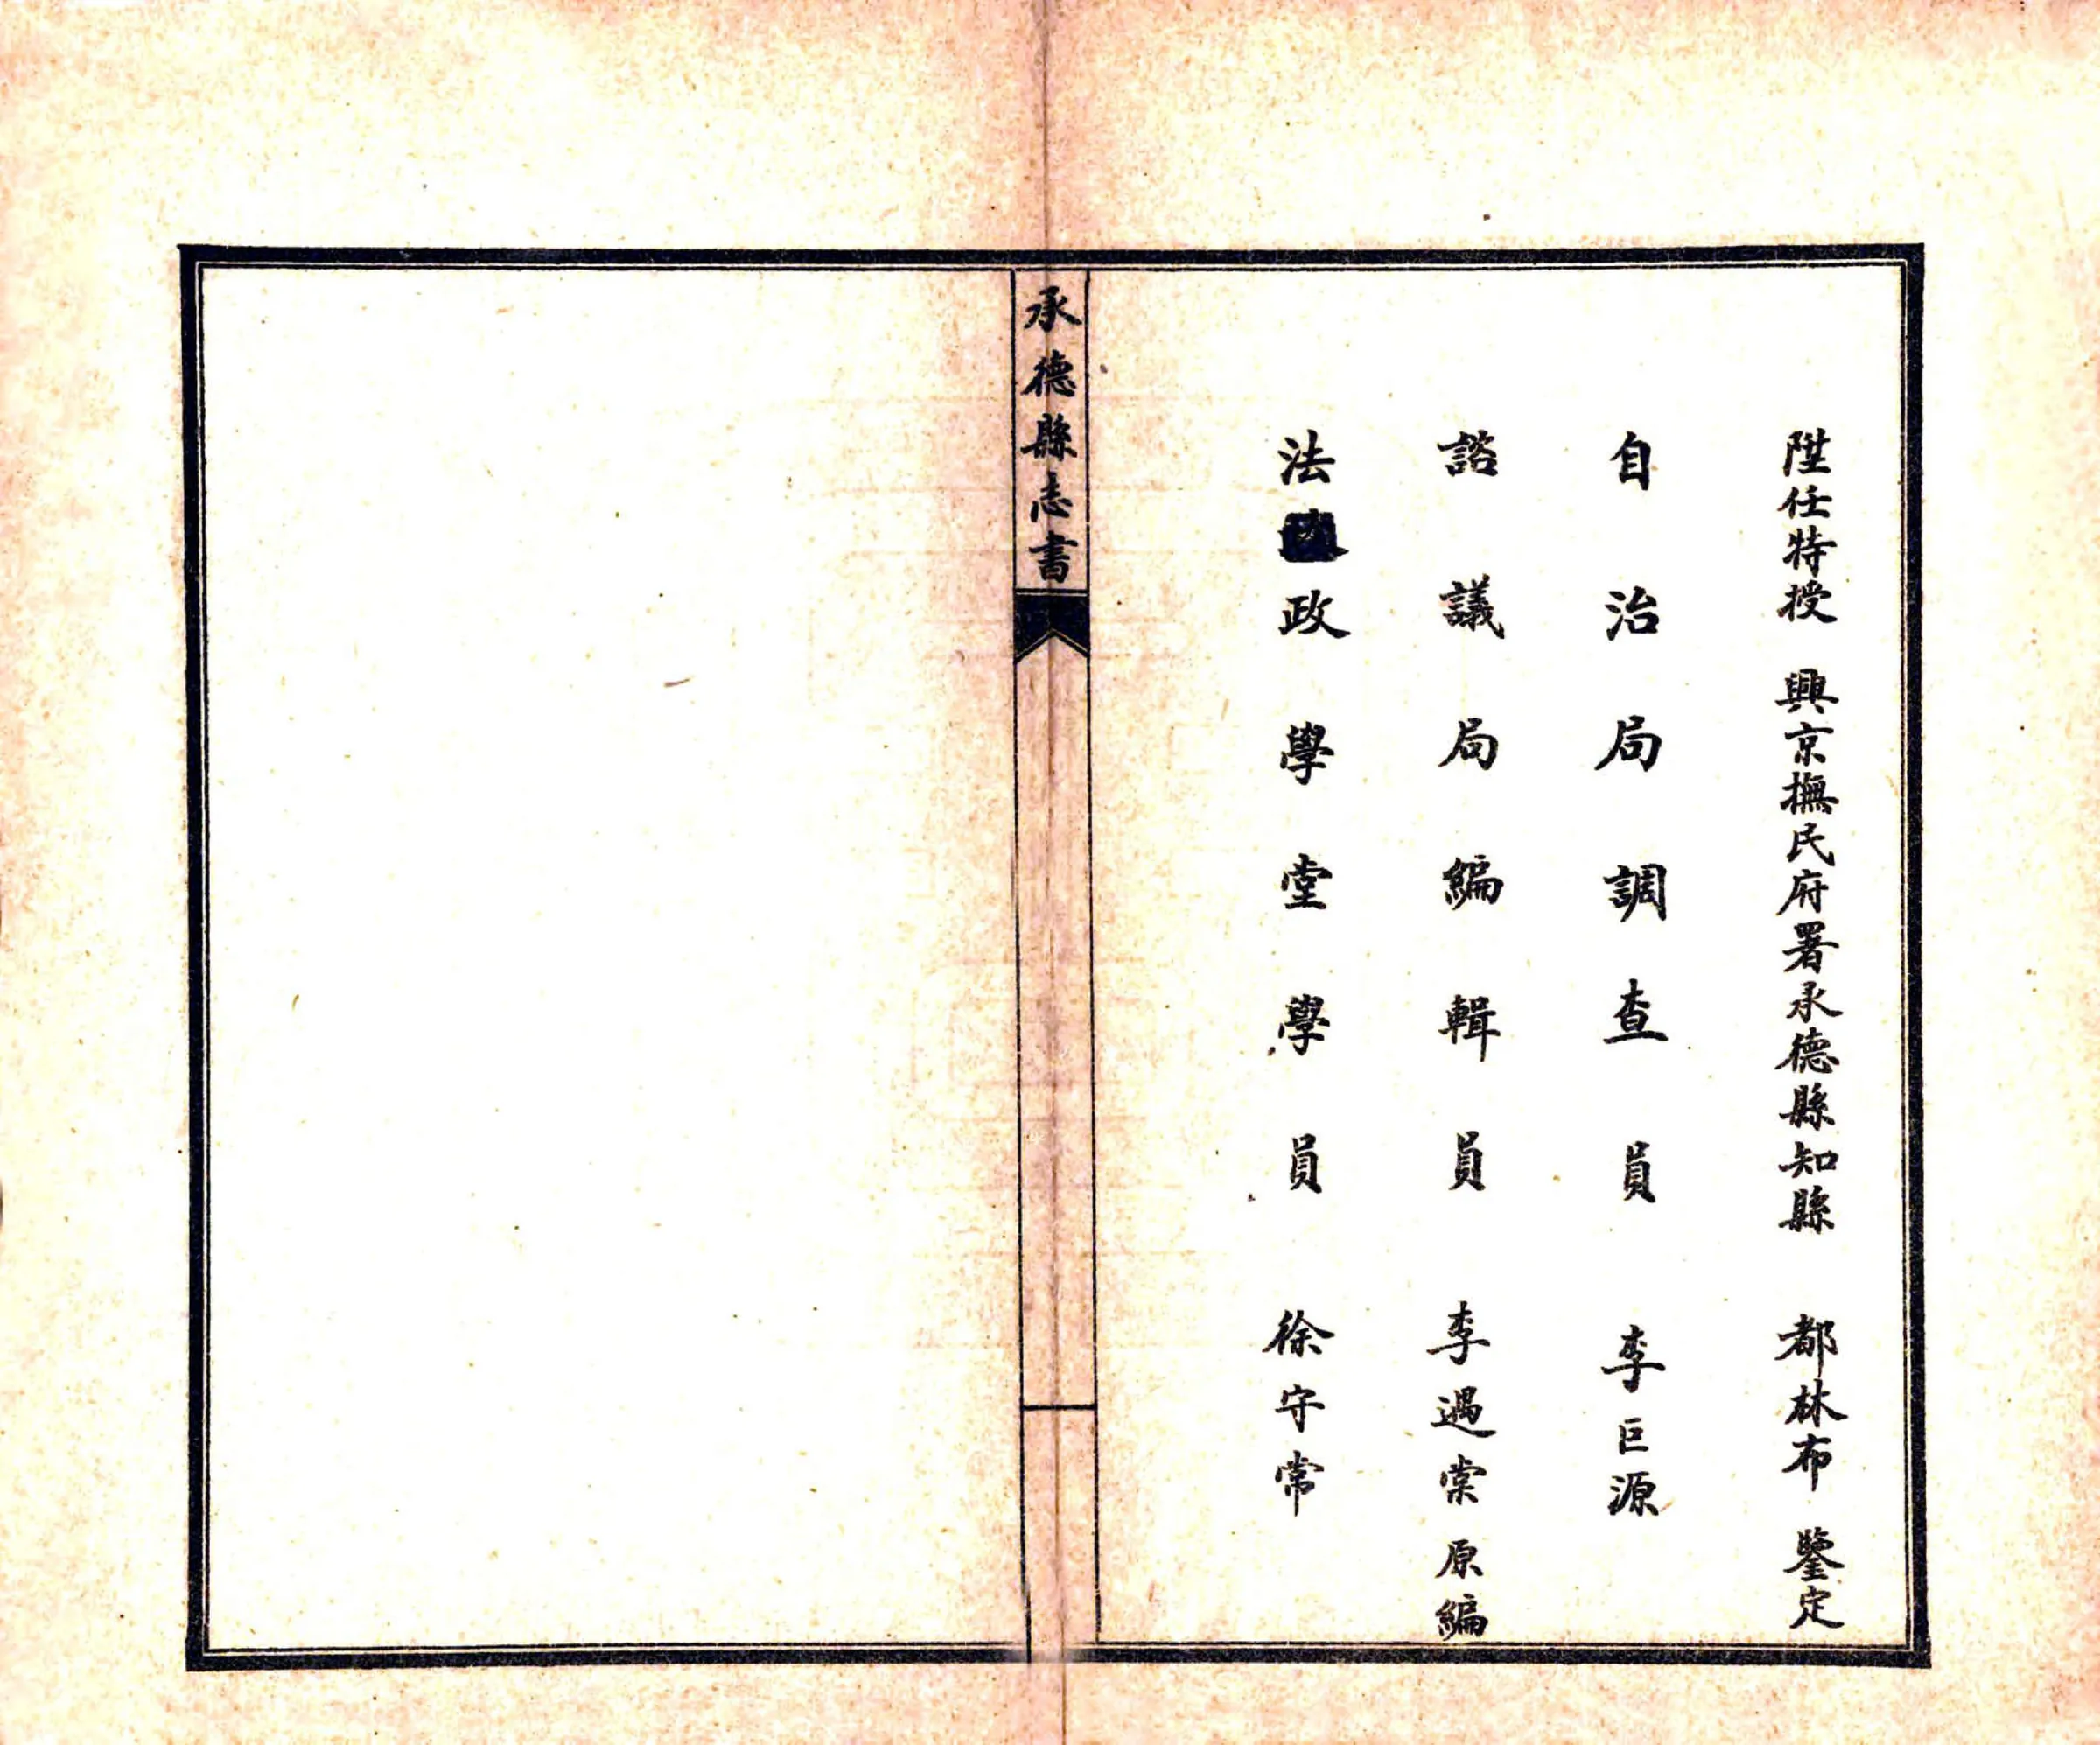 陞任特授 興京撫民府署承德縣知縣 都林布 鑒定
自治局調查員 李巨源
諮議局編輯員 李遇棠 原編
法政學堂學員 徐守常
承德縣志書